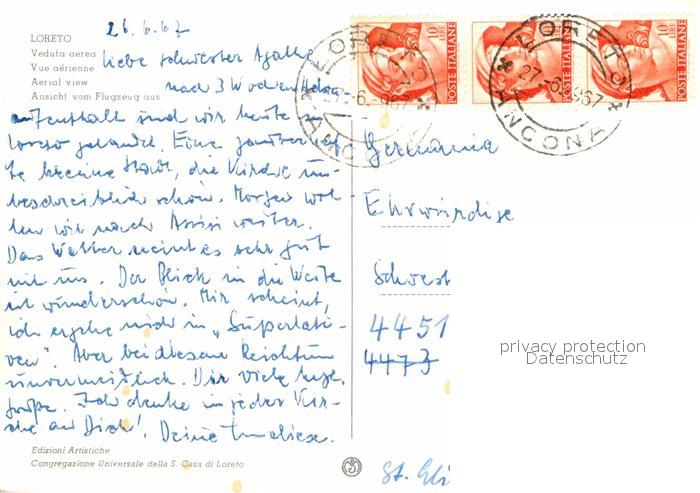 26.6.67
LORETO
Veduta aerea
Vue aérienne
Aerial view
Ansicht vom Flugzeug aus
Liebe Schwester Agathe
nach 3 Wochen
aufenthalt sind wir heute in
Loreto gelandet. Eine
kleine Stadt, die Kirche un-
beschreiblich schön. Morgen wol-
len wir nach Assisi weiter.
Das Wetter meint es sehr gut
mit uns. Der Blick in die Weite
ist wunderschön. Mir scheint,
ich ergehe mich in „Superlati-
ven". Aber bei diesem Reichtum
unvermeidlich. Dir viele herzl.
Grüße. Ich denke in jeder Kir-
che an Dich! Deine
Edizioni Artistiche
Congregazione Universale della S. Casa di Loreto
10 LIRE
POSTE ITALIANE
POSTE ITALIANE
10 LIRE
POSTE ITALIANE
LORETO
27.-6.-967
ANCONA
LORETO
27.-6.-967
ANCONA
Germania
Ehrwürdige
Schwest
4451
4473
privacy protection
Datenschutz
St. Eli